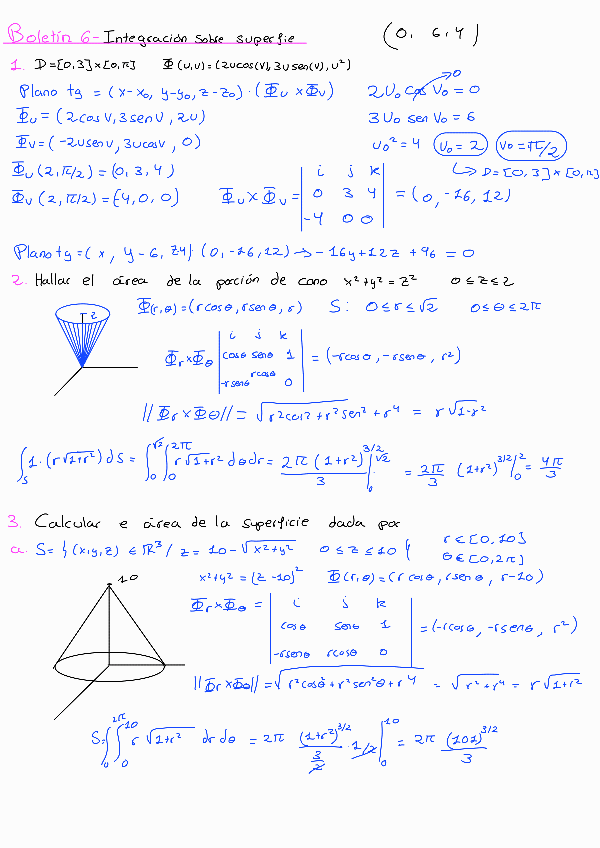 Boletín 6- Integración sobre superfie (0, 6, 4)
1. D=[0,3]×[0,π] Φ(u,v)=(2ucos(v), 3u sen(v), u²)
Plano tg = (x-x₀, y-y₀, z-z₀)·(Φu × Φv) 2u₀ cos v₀ = 0 → 0
Φu = (2cos v, 3 sen v, 2u) 3u₀ sen v₀ = 6
Φv = (-2u sen v, 3u cos v, 0) u₀² = 4 u₀ = 2 v₀ = π/2
Φu (2, π/2) = (0, 3, 4) ↳ D=[0,3]×[0,π]
Φv (2, π/2) = (-4, 0, 0) Φu × Φv = | i j k | 0 3 4 | -4 0 0 | = (0, -16, 12)
Plano tg = (x, y-6, z-4)·(0, -16, 12) → -16y+12z+96 = 0
2. Hallar el área de la porción de cono x²+y² = z² 0≤z≤2
Φ(r,θ)=(r cosθ, r senθ, r) S: 0≤r≤√2 0≤θ≤2π
2
Φr × Φθ | i j k | cosθ senθ 1 | -r senθ r cosθ 0 | = (-r cosθ, -r senθ, r²)
||Φr × Φθ|| = √(r²cos² + r²sen² + r⁴) = r√(1-r²)
∫S 1·(r√(1+r²)) dS = ∫₀^√2 ∫₀^2π r√(1+r²) dθ dr = 2π(1+r²)^3/2 / 3 |₀^√2 = 2π/3 (1+r²)^3/2 |₀^2 = 4π/3
3. Calcular e área de la superficie dada por
a. S= {(x,y,z) ∈ ℝ³ / z = 10-√(x²+y²) 0≤z≤10 } r∈[0,10]
θ∈[0,2π]
10 x²+y² = (z-10)² Φ(r,θ)=(r cosθ, r senθ, r-10)
Φr × Φθ = | i j k | cosθ senθ 1 | -r senθ r cosθ 0 | = (-r cosθ, -r senθ, r²)
||Φr × Φθ|| = √(r²cos²θ + r²sen²θ + r⁴) = √(r²+r⁴) = r√(1+r²)
S=∫₀^2π ∫₀^10 r√(1+r²) dr dθ = 2π (1+r²)^3/2 / (3/2) · 1/2 |₀^10 = 2π (101)^3/2 / 3